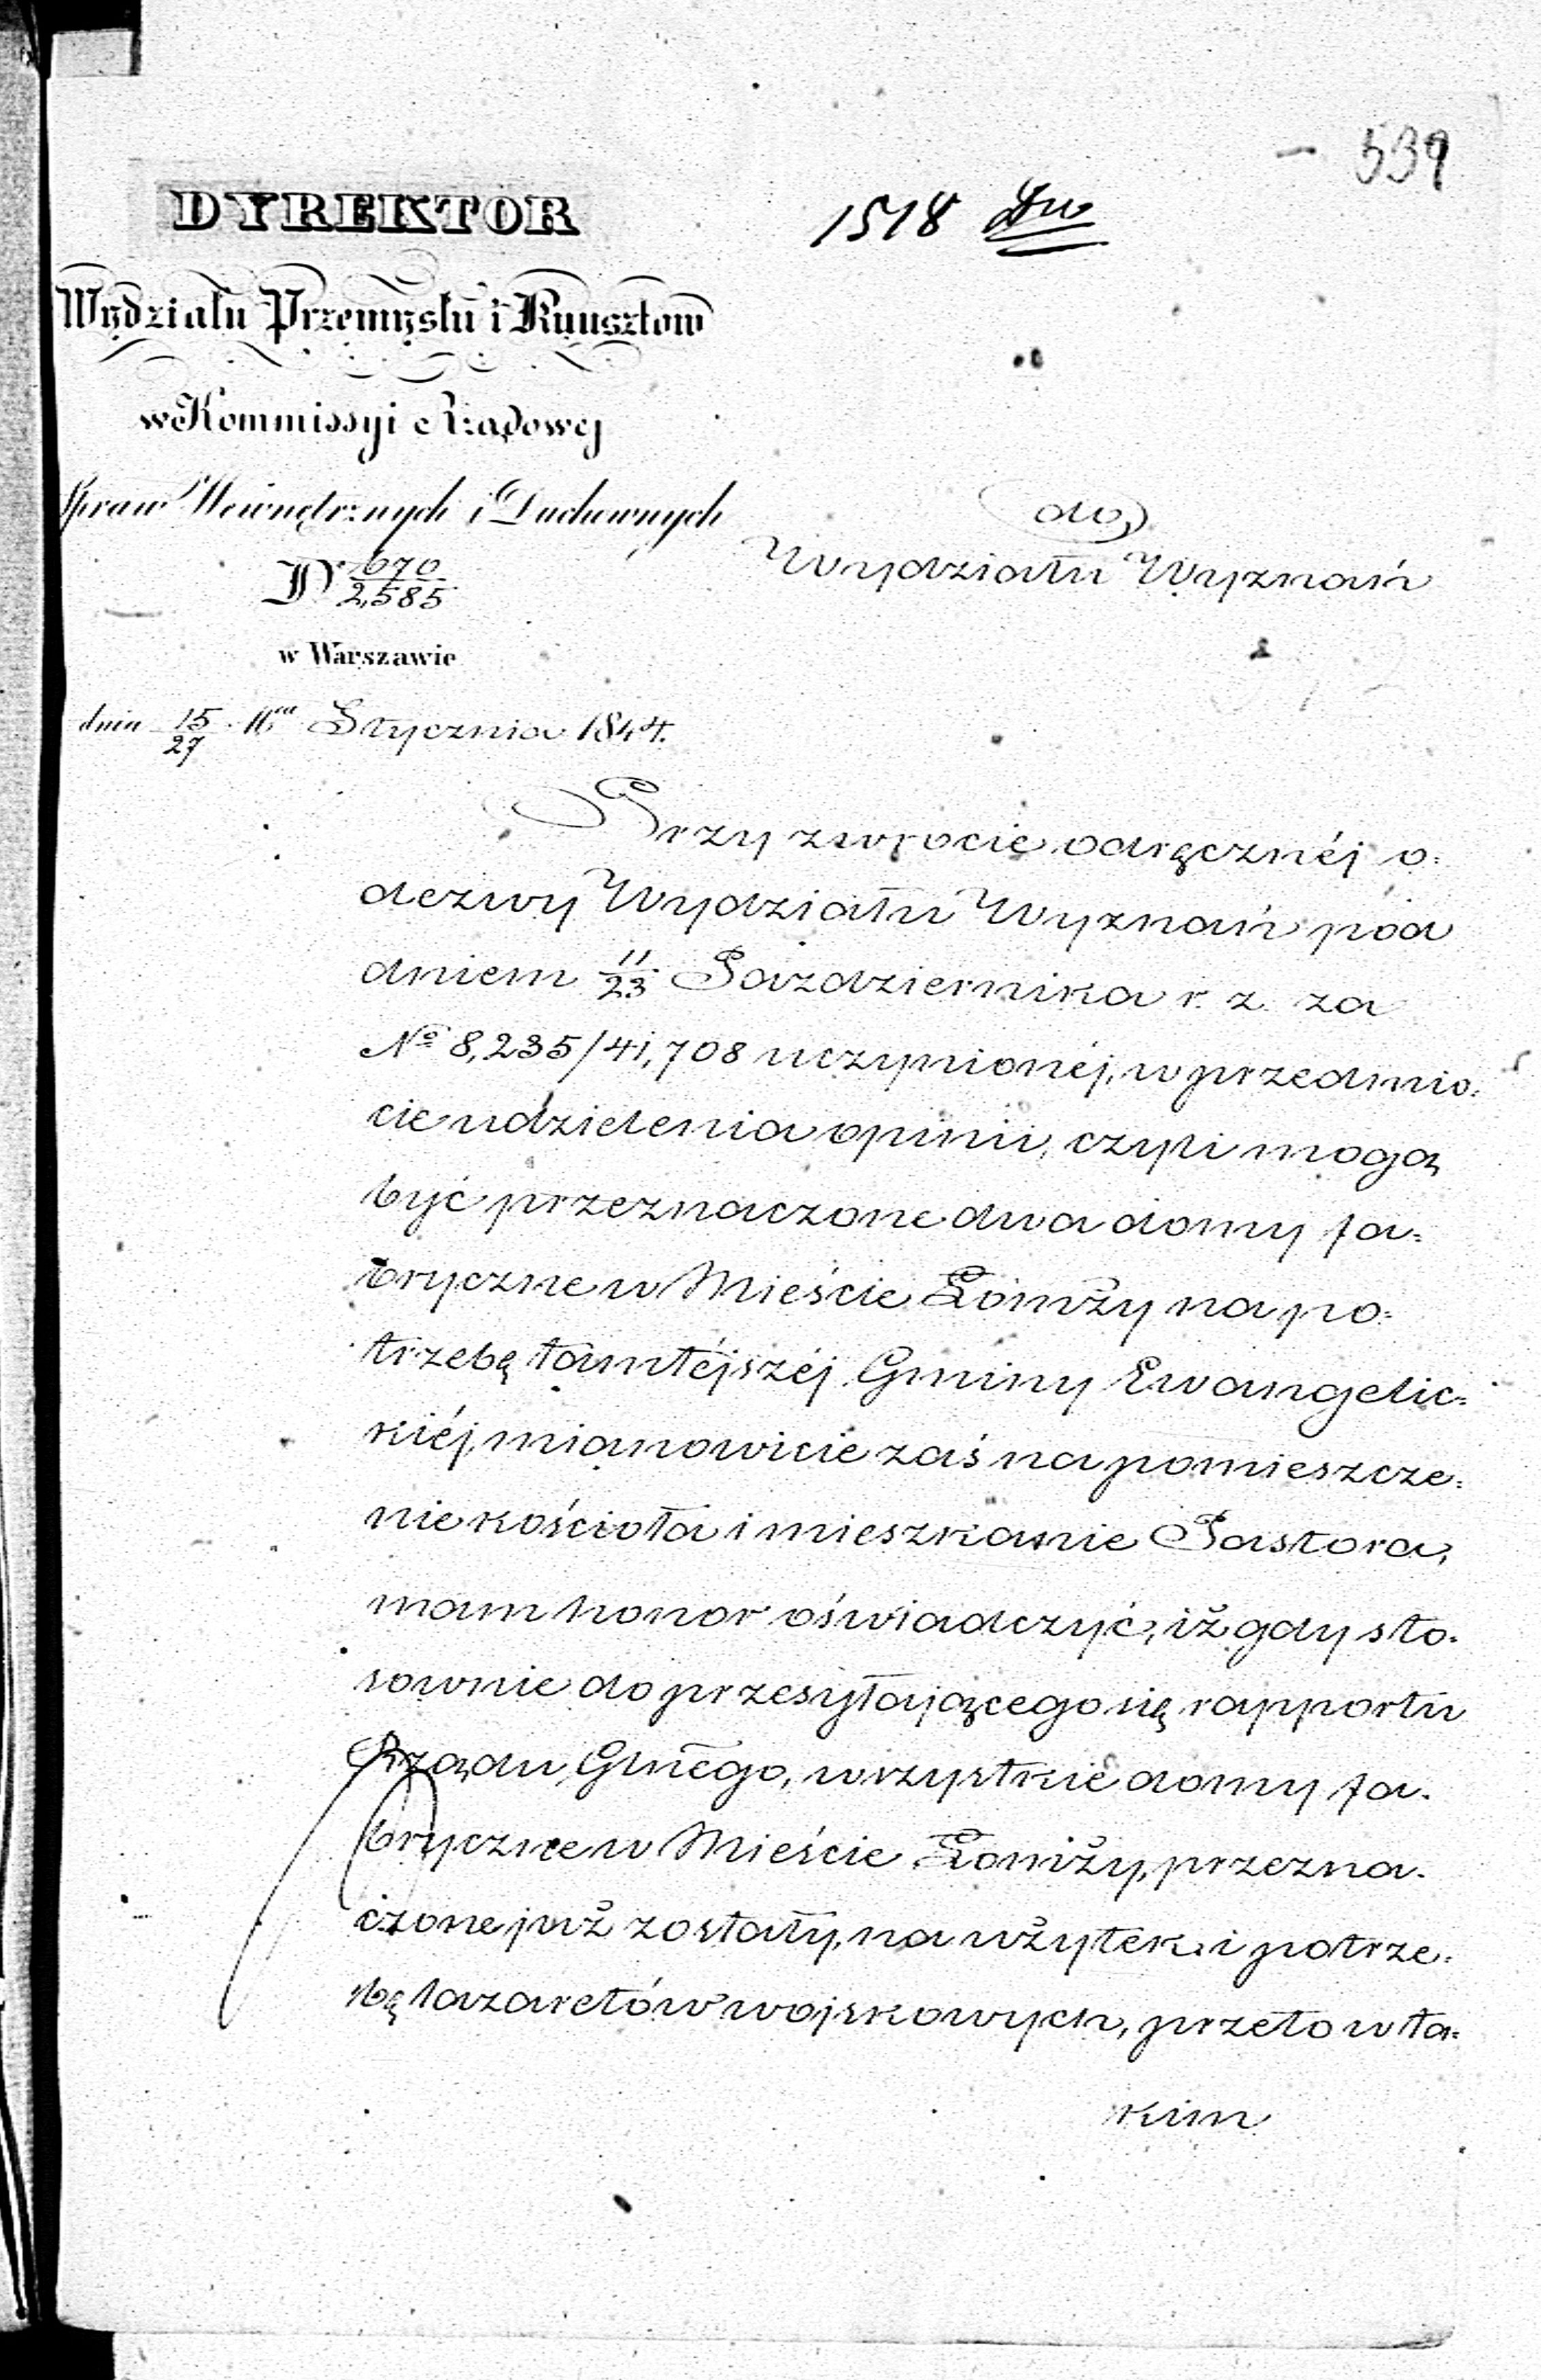 539
DYREKTOR
1518
Wydziału Przemysłu i Kunsztow
w Kommissyi Rządowej
Spraw Wewnętrznych i Duchownych
do
Wydziału Wyznań
N 670/2,585
w Warszawie
dnia 15/27 Stycznia 1844.
Przy zwrocie odręcznéj o=
dezwy Wydziału Wyznań pod
dniem 11/23 Pazdziernika r. z. za
No 8,235/41,708 uczynionéj, w przedmio=
cie udzielenia opinii, czyli mogą
być przeznaczone dwa domy fa=
bryczne w Mieście Łomży na po=
trzebę tamtéjszéj Gminy Ewangelic=
kiéj, mianowicie zaś na pomieszcze=
nie kościoła i mieszkanie Pastora,
mam honor oświadczyć, iż gdy sto=
sownie do przesyłającego się rapportu
Rządu Głnego, wszystkie domy fa=
bryczne w Mieście Łomży, przezna=
czone już zostały, na użytek i potrze=
bę lazaretów wojskowych, przeto w ta=
kim